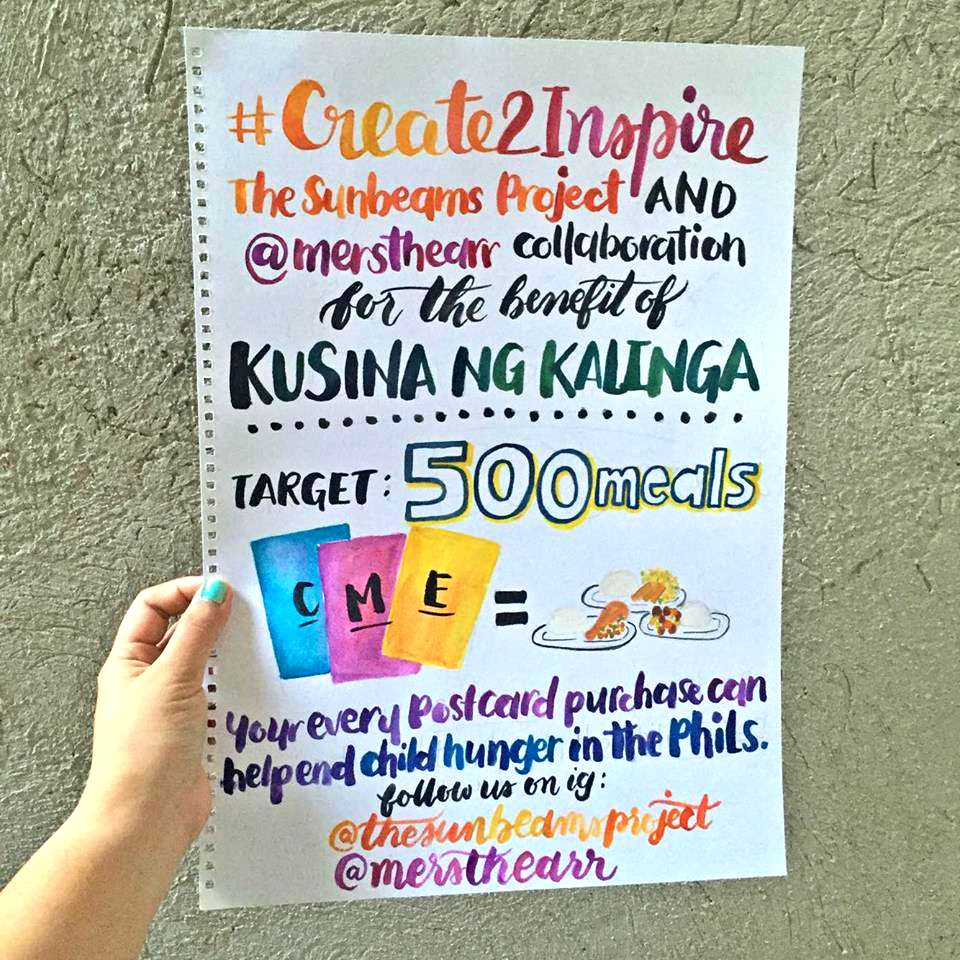 #Create2Inspire
The Sunbeams Project AND
@mersthearr collaboration
for the benefit of
KUSINA NG KALINGA
TARGET: 500 meals
C M E =
your every Postcard purchase can
help end child hunger in the Phils.
follow us on ig:
@thesunbeamsproject
@mersthearr